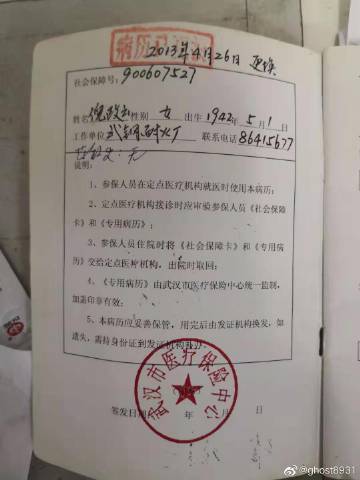 病历
2013年4月26日
社会保障号:
900607527
姓名 性别 女 出生 1942年5月1日
工作单位 联系电话 86415677
无
说明:
1、参保人员在定点医疗机构就医时使用本病历;
2、定点医疗机构接诊时应审验参保人员《社会保障
卡》和《专用病历》;
3、参保人员住院时将《社会保障卡》和《专用病
历》交给定点医疗机构,出院时取回;
4、《专用病历》由武汉市医疗保险中心统一监制,
加盖印章有效;
5、本病历应妥善保管,用完后由发证机构换发,如
遗失,需持身份证到发证机构补办;
武汉市医疗保险中心
签发日期 年 月 日
@ghost8931